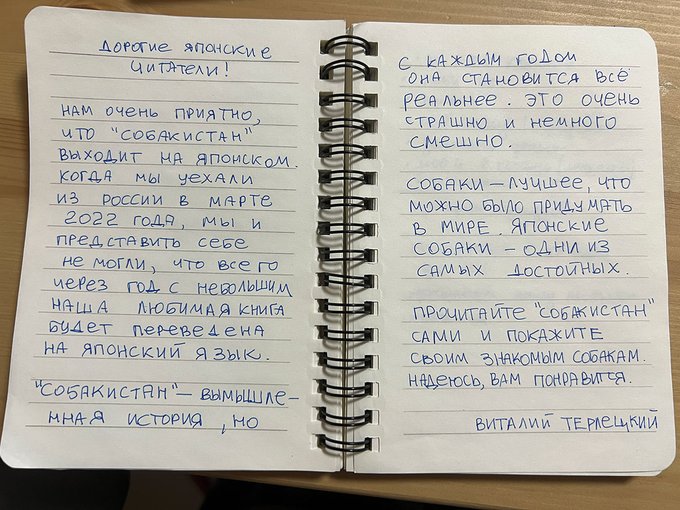 ДОРОГИЕ ЯПОНСКИЕ
ЧИТАТЕЛИ!
НАМ ОЧЕНЬ ПРИЯТНО,
ЧТО "СОБАКИСТАН"
ВЫХОДИТ НА ЯПОНСКОМ.
КОГДА МЫ УЕХАЛИ
ИЗ РОССИИ В МАРТЕ
2022 ГОДА, МЫ И
ПРЕДСТАВИТЬ СЕБЕ
НЕ МОГЛИ, ЧТО ВСЕГО
ЧЕРЕЗ ГОД С НЕБОЛЬШИМ
НАША ЛЮБИМАЯ КНИГА
БУДЕТ ПЕРЕВЕДЕНА
НА ЯПОНСКИЙ ЯЗЫК.
"СОБАКИСТАН" – ВЫМЫШЛЕ-
ННАЯ ИСТОРИЯ, НО
С КАЖДЫМ ГОДОМ
ОНА СТАНОВИТСЯ ВСЁ
РЕАЛЬНЕЕ. ЭТО ОЧЕНЬ
СТРАШНО И НЕМНОГО
СМЕШНО.
СОБАКИ – ЛУЧШЕЕ, ЧТО
МОЖНО БЫЛО ПРИДУМАТЬ
В МИРЕ. ЯПОНСКИЕ
СОБАКИ – ОДНИ ИЗ
САМЫХ ДОСТОЙНЫХ.
ПРОЧИТАЙТЕ "СОБАКИСТАН"
САМИ И ПОКАЖИТЕ
СВОИМ ЗНАКОМЫМ СОБАКАМ.
НАДЕЮСЬ, ВАМ ПОНРАВИТСЯ.
ВИТАЛИЙ ТЕРЛЕЦКИЙ